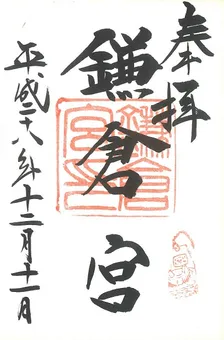 奉拝
鎌倉宮
平成二十八年十二月十一日
鎌倉宮